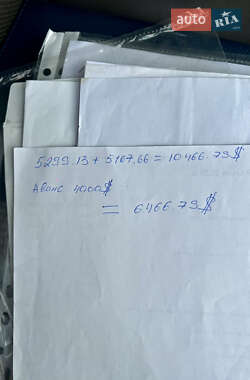 auto RIA
5299.13 + 5167,66 = 10466.79$
Аванс 4000$
= 6466.79$